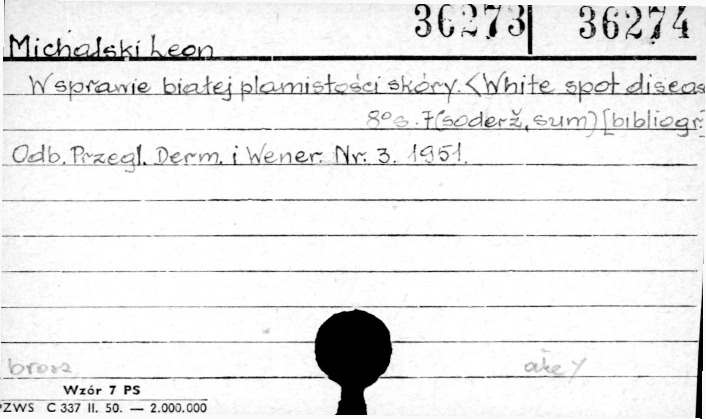 36273 36274
Michalski Leon
W sprawie białej plamistości skóry. <White spot diseas
8° s. 7 (soderž, sum) [bibliogr.]
Odb. Przegl. Derm. i Wener. Nr. 3. 1951.
brosz
Wzór 7 PS
PZWS C 337 II. 50. — 2.000.000